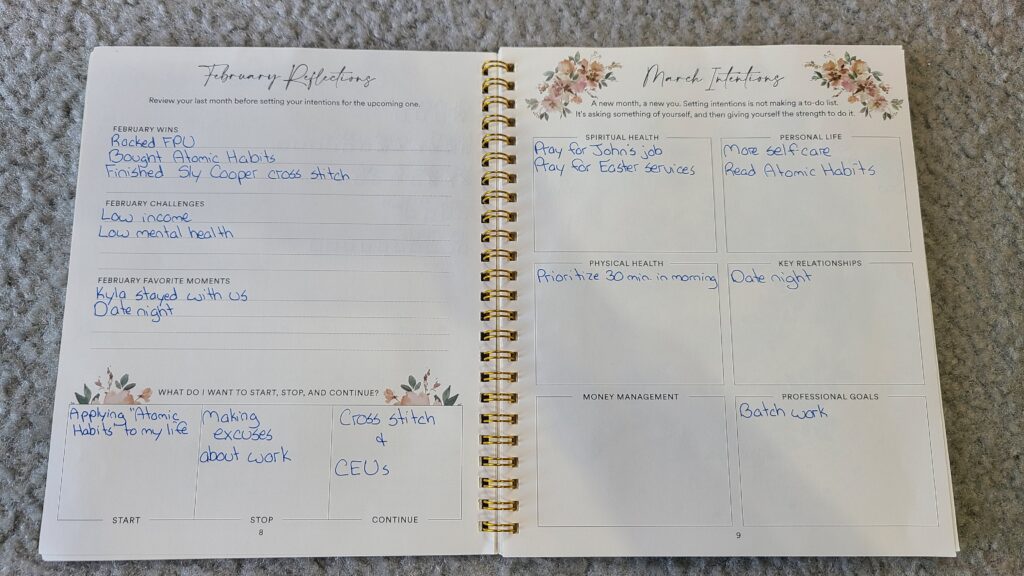 February Reflections
Review your last month before setting your intentions for the upcoming one.
FEBRUARY WINS
Rocked FPU
Bought Atomic Habits
Finished Sly Cooper cross stitch
FEBRUARY CHALLENGES
Low income
Low mental health
FEBRUARY FAVORITE MOMENTS
Kyla stayed with us
Date night
WHAT DO I WANT TO START, STOP, AND CONTINUE?
Applying "Atomic
Habits" to my life
START
Making
excuses
about work
STOP
Cross stitch
&
CEUs
CONTINUE
8
March Intentions
A new month, a new you. Setting intentions is not making a to-do list.
It's asking something of yourself, and then giving yourself the strength to do it.
SPIRITUAL HEALTH
Pray for John's job
Pray for Easter services
PERSONAL LIFE
More self-care
Read Atomic Habits
PHYSICAL HEALTH
Prioritize 30 min. in morning
KEY RELATIONSHIPS
Date night
MONEY MANAGEMENT
PROFESSIONAL GOALS
Batch work
9